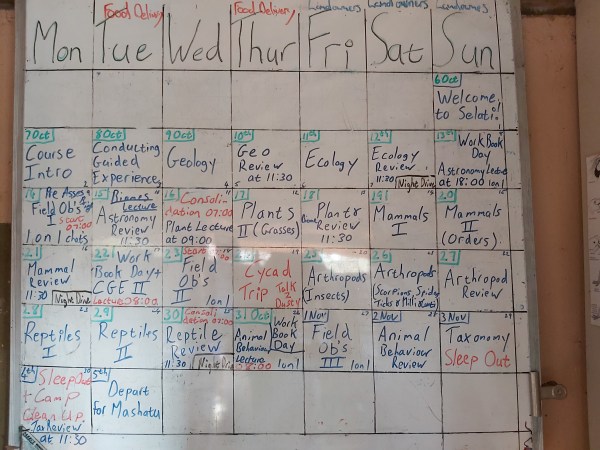 Food Delivery
Food Delivery
Landowners
Landowners
Landowners
Mon Tue Wed Thur Fri Sat Sun
6 Oct
Welcome
to Selati!
7 Oct
Course
Intro
8 Oct
Conducting
Guided
Experience
9 Oct
Geology
10th
Geo
Review
at 11:30
11th
Ecology
12th
Ecology
Review
11:30
Night Drive
13th
Work Book
Day
Astronomy Lecture
at 18:00 1on1
14
Pre Assess
Field Ob's
I
Start
07:00
1on1 chats
15
Biomes
Lecture
Astronomy
Review
11:30
16
Consoli
dation 07:00
Plant Lecture
at 09:00
17
Plants
II (Grasses)
18
Plants
Review
11:30
19
Mammals
I
20
Mammals
II
(Orders)
21
Mammal
Review
11:30
Night Drive
22
Work
Book Day+
CGE II
Lecture 08:00
23
Start
Field
Ob's
II
1on1
Cycad
Trip
Talk
2
25
Arthropods
(Insects)
26
Arthropods
(Scorpions, Spider
Ticks & Millipedes)
27
Arthropod
Review
28
Reptiles
I
29
Reptiles
II
30
Consoli
dation 07:00
Reptile
Review
11:30
31 Oct
Animal
Behaviour
Lecture
08:00
Work
Book
Day
1on1
1 Nov
Field
Ob's
III 1on1
2 Nov
Animal
Behaviour
Review
3 Nov
Taxonomy
Sleep Out
4th
Sleep Out
+ Camp
Clean Up
Tax Review
at 11:30
5th
Depart
for Mashatu